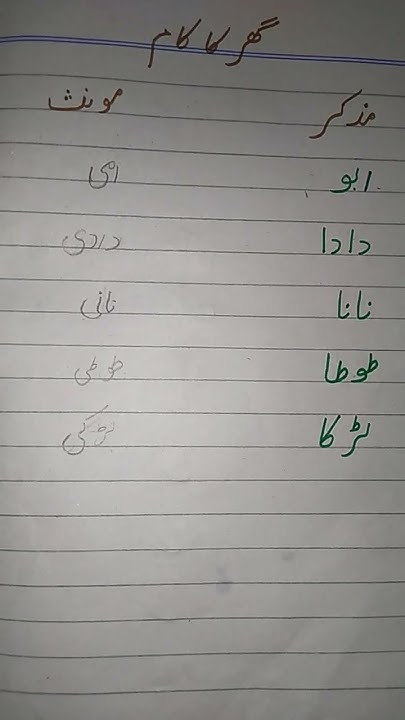 گھر کا کام
مذکر مونث
ابو امی
دادا دادی
نانا نانی
طوطا طوطی
لڑکا لڑکی